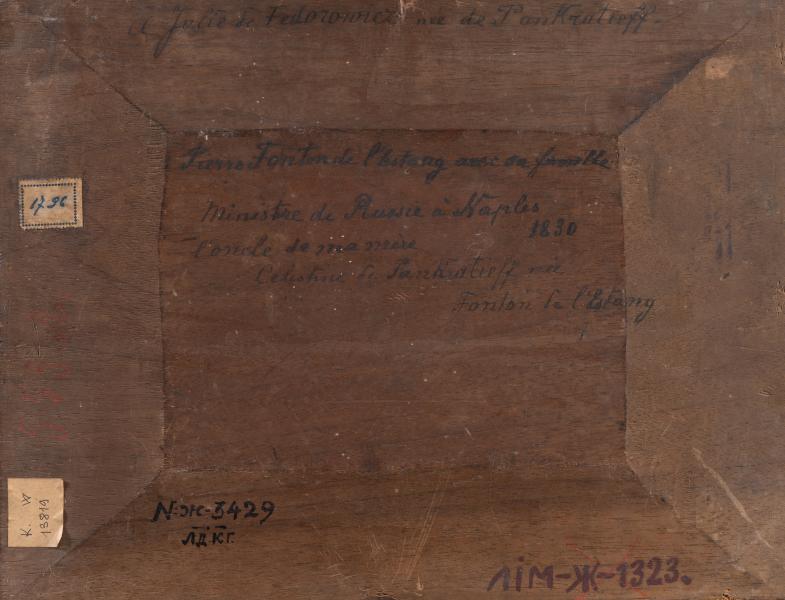 A Julie de Fedorowicz née de Pankratieff.
Pierre Fonton de l'Estang avec sa famille
Ministre de Russie à Naples
1830
l'oncle de ma mère
Célestine de Pankratieff née
Fonton de l'Estang
1796
K. W
13819
N-Ж-3429
Л.Д.К.Г.
ЛІМ-Ж-1323.